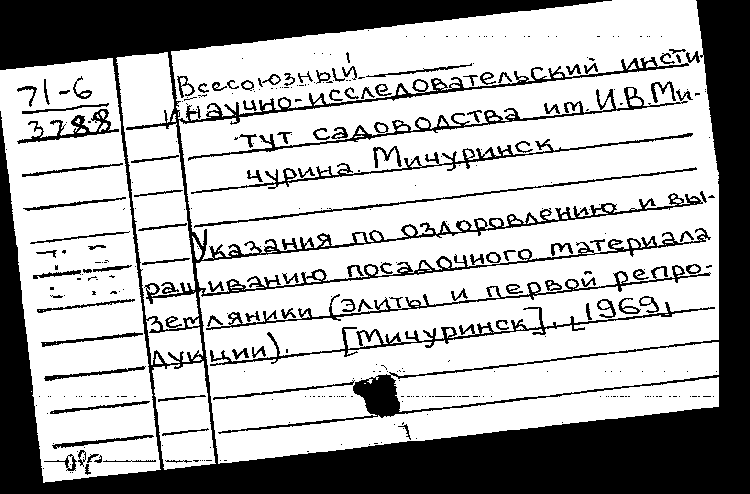 71-6
3788
Всесоюзный
научно-исследовательский инсти-
тут садоводства им. И.В.Ми-
чурина. Мичуринск.
Указания по оздоровлению и вы-
ращиванию посадочного материала
земляники (элиты и первой репро-
дукции). [Мичуринск]. [1969]